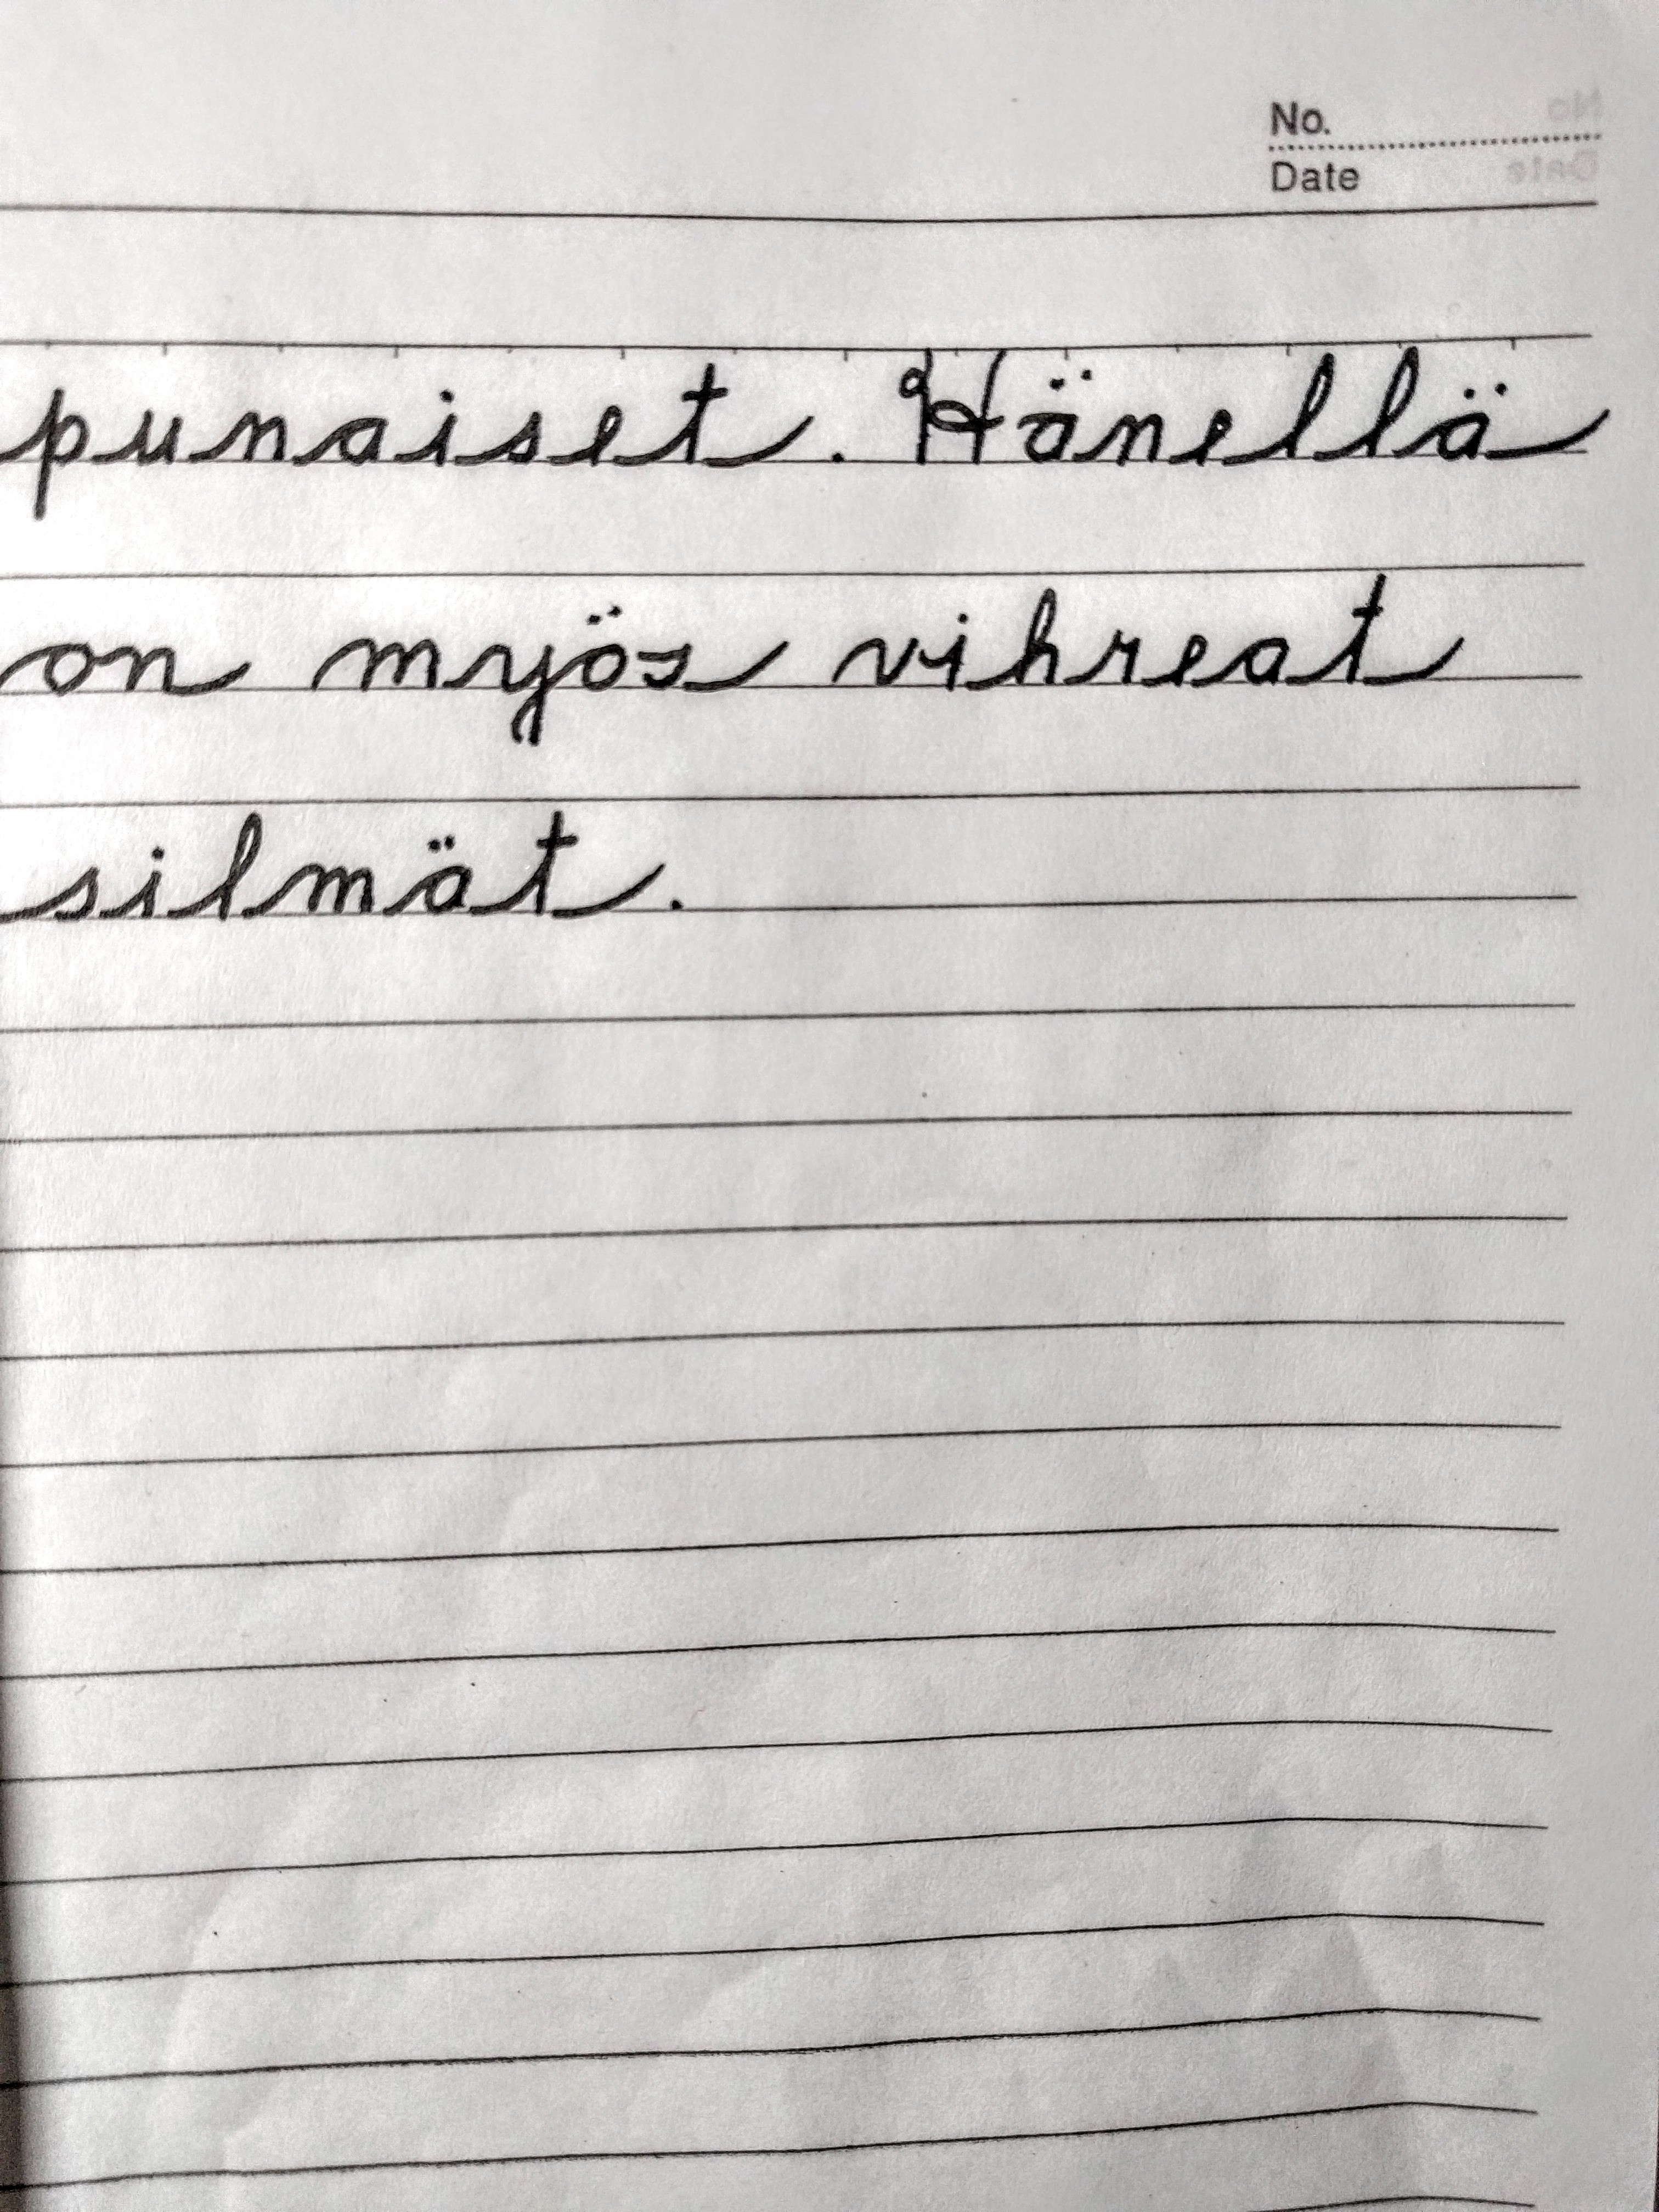 No.
Date
punaiset. Hänellä
on myös vihreat
silmät.